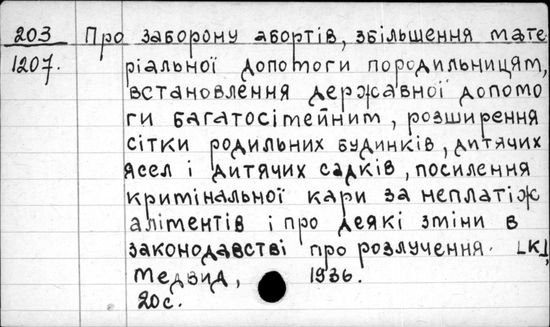 203 Про заборону абортів, збільшення мате
1207. ріальної допомоги породильницям,
встановлення державної допомо
ги багатосімейним, розширення
сітки родильних будинків, дитячих
ясел і дитячих садків, посилення
кримінальної кари за неплатіж
аліментів і про деякі зміни в
законодавстві про розлучення. [К],
Медвид, 1936.
20с.